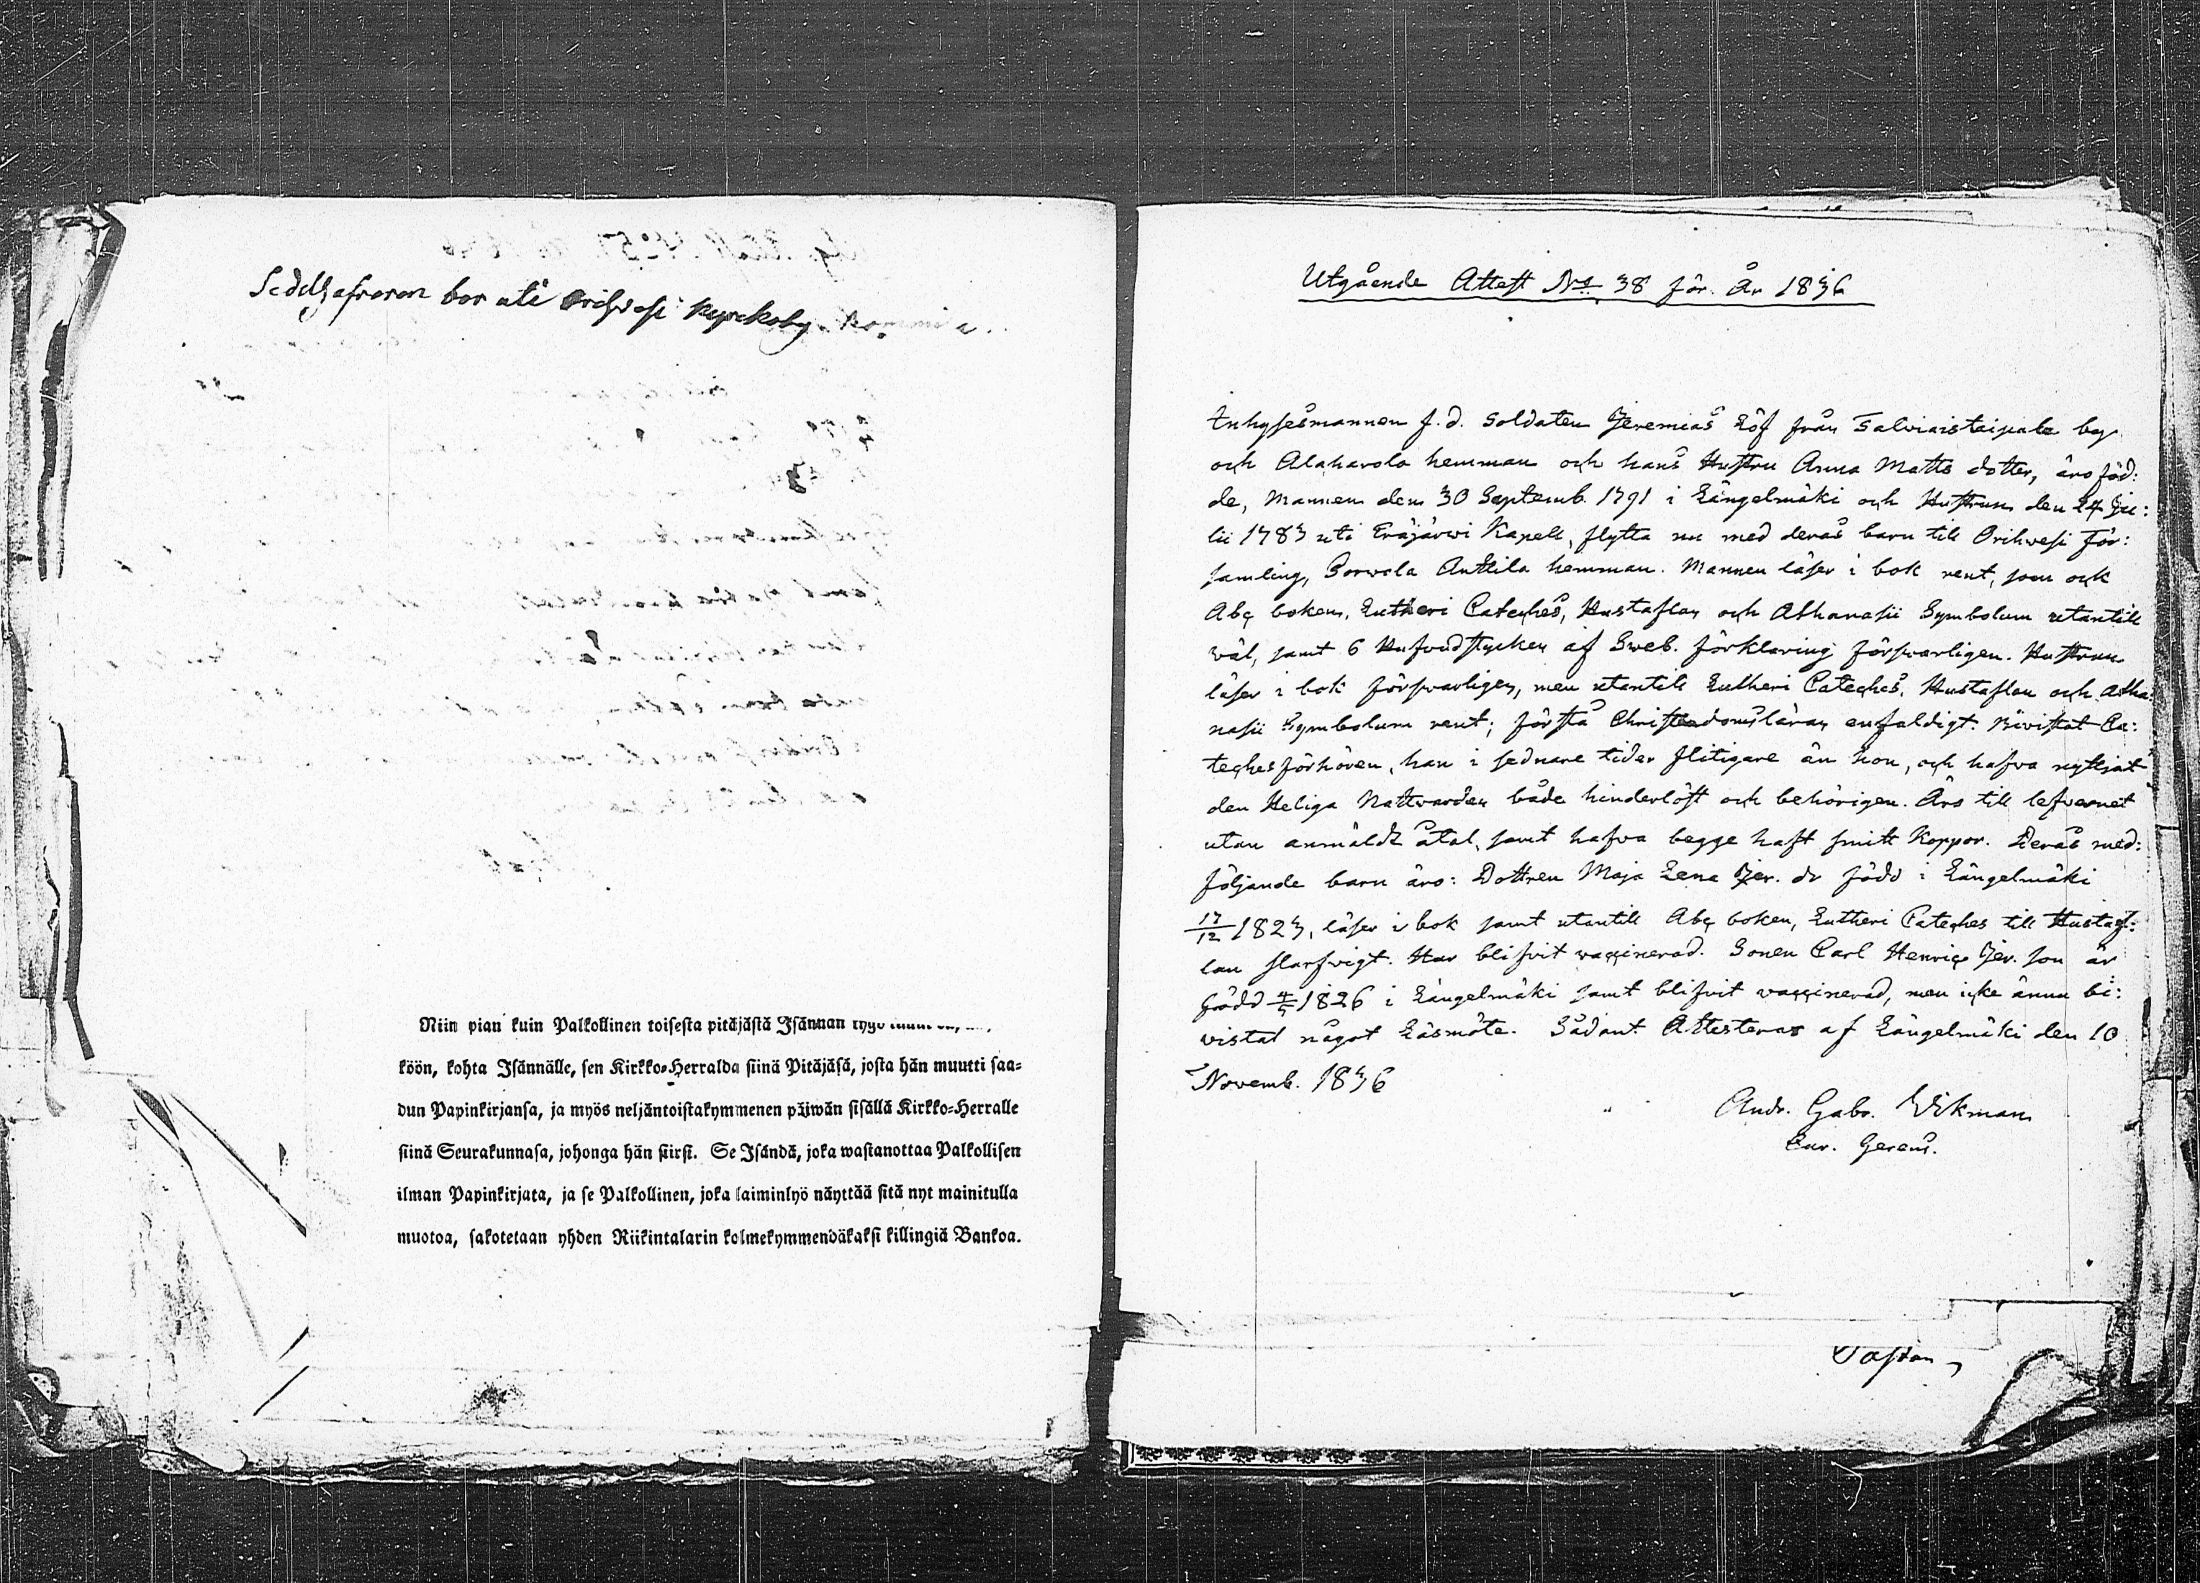 Sedelhafvaren bor uti Orihvesi Kyrckoby
Niin pian kuin Palkollinen toisesta pitäjästä Isännän tygö
köön, kohta Isännälle, sen Kirkko-Herralda siinä Pitäjäsä, josta hän muutti saa-
dun Papinkirjansa, ja myös neljäntoistakymmenen päiwän sisällä Kirkko-Herralle
siinä Seurakunnasa, johonga hän siirsi. Se Isändä, joka wastanottaa Palkollisen
ilman Papinkirjata, ja se Palkollinen, joka laiminlyö näyttää sitä nyt mainitulla
muotoa, sakotetaan yhden Riikintalarin kolmekymmendäkaksi killingiä Bankoa.
Utgående Attest No 38 för År 1836
Inhysesmannen f.d. Soldaten Jeremias Löf från Talviaistaipale by
och Alaharola hemman och hans Hustru Anna Matts dotter, äro föd:
de, Mannen den 30 Septemb. 1791 i Längelmäki och Hustrun den 24 Ju:
lii 1783 uti Eräjärwi Kapell, flytta nu med deras barn till Orihwesi För:
samling, Porwola Anttila hemman. Mannen läser i bok rent, som ock
Abc boken, Lutheri Cateches, Hustaflan och Athanasii Symbolum utantill
wäl, samt 6 Hufvudstycken af Sweb. förklaring försvarligen. Hustrun
läser i bok försvarligen, men utantill Lutheri Cateches, Hustaflan och Atha:
nasii Symbolum rent; förstå Christendomsläran enfaldigt. Bivistat Ca:
techesförhören, han i sednare tider flitigare än hon, och hafva nyttjat
den Heliga Nattvarden både hinderlöst och behörigen. Äro till lefvernet
utan anmäldt åtal, samt hafva begge haft smitt Koppor. Deras med:
följande barn äro: Dottren Maja Lena Jer. dr född i Längelmäki
17/12 1823, läser i bok samt utantill Abc boken, Lutheri Cateches till Hustaf:
lan slarfvigt. Har blifvit vaccinerad. Sonen Carl Henric Jer. son är
född 4/5 1826 i Längelmäki samt blifvit vaccinerad, men icke ännu bi:
vistat något Läsmöte. Sådant Attesteras af Längelmäki den 10
Novemb. 1836
Andr. Gabr. Wikman
Cur. Gerens.